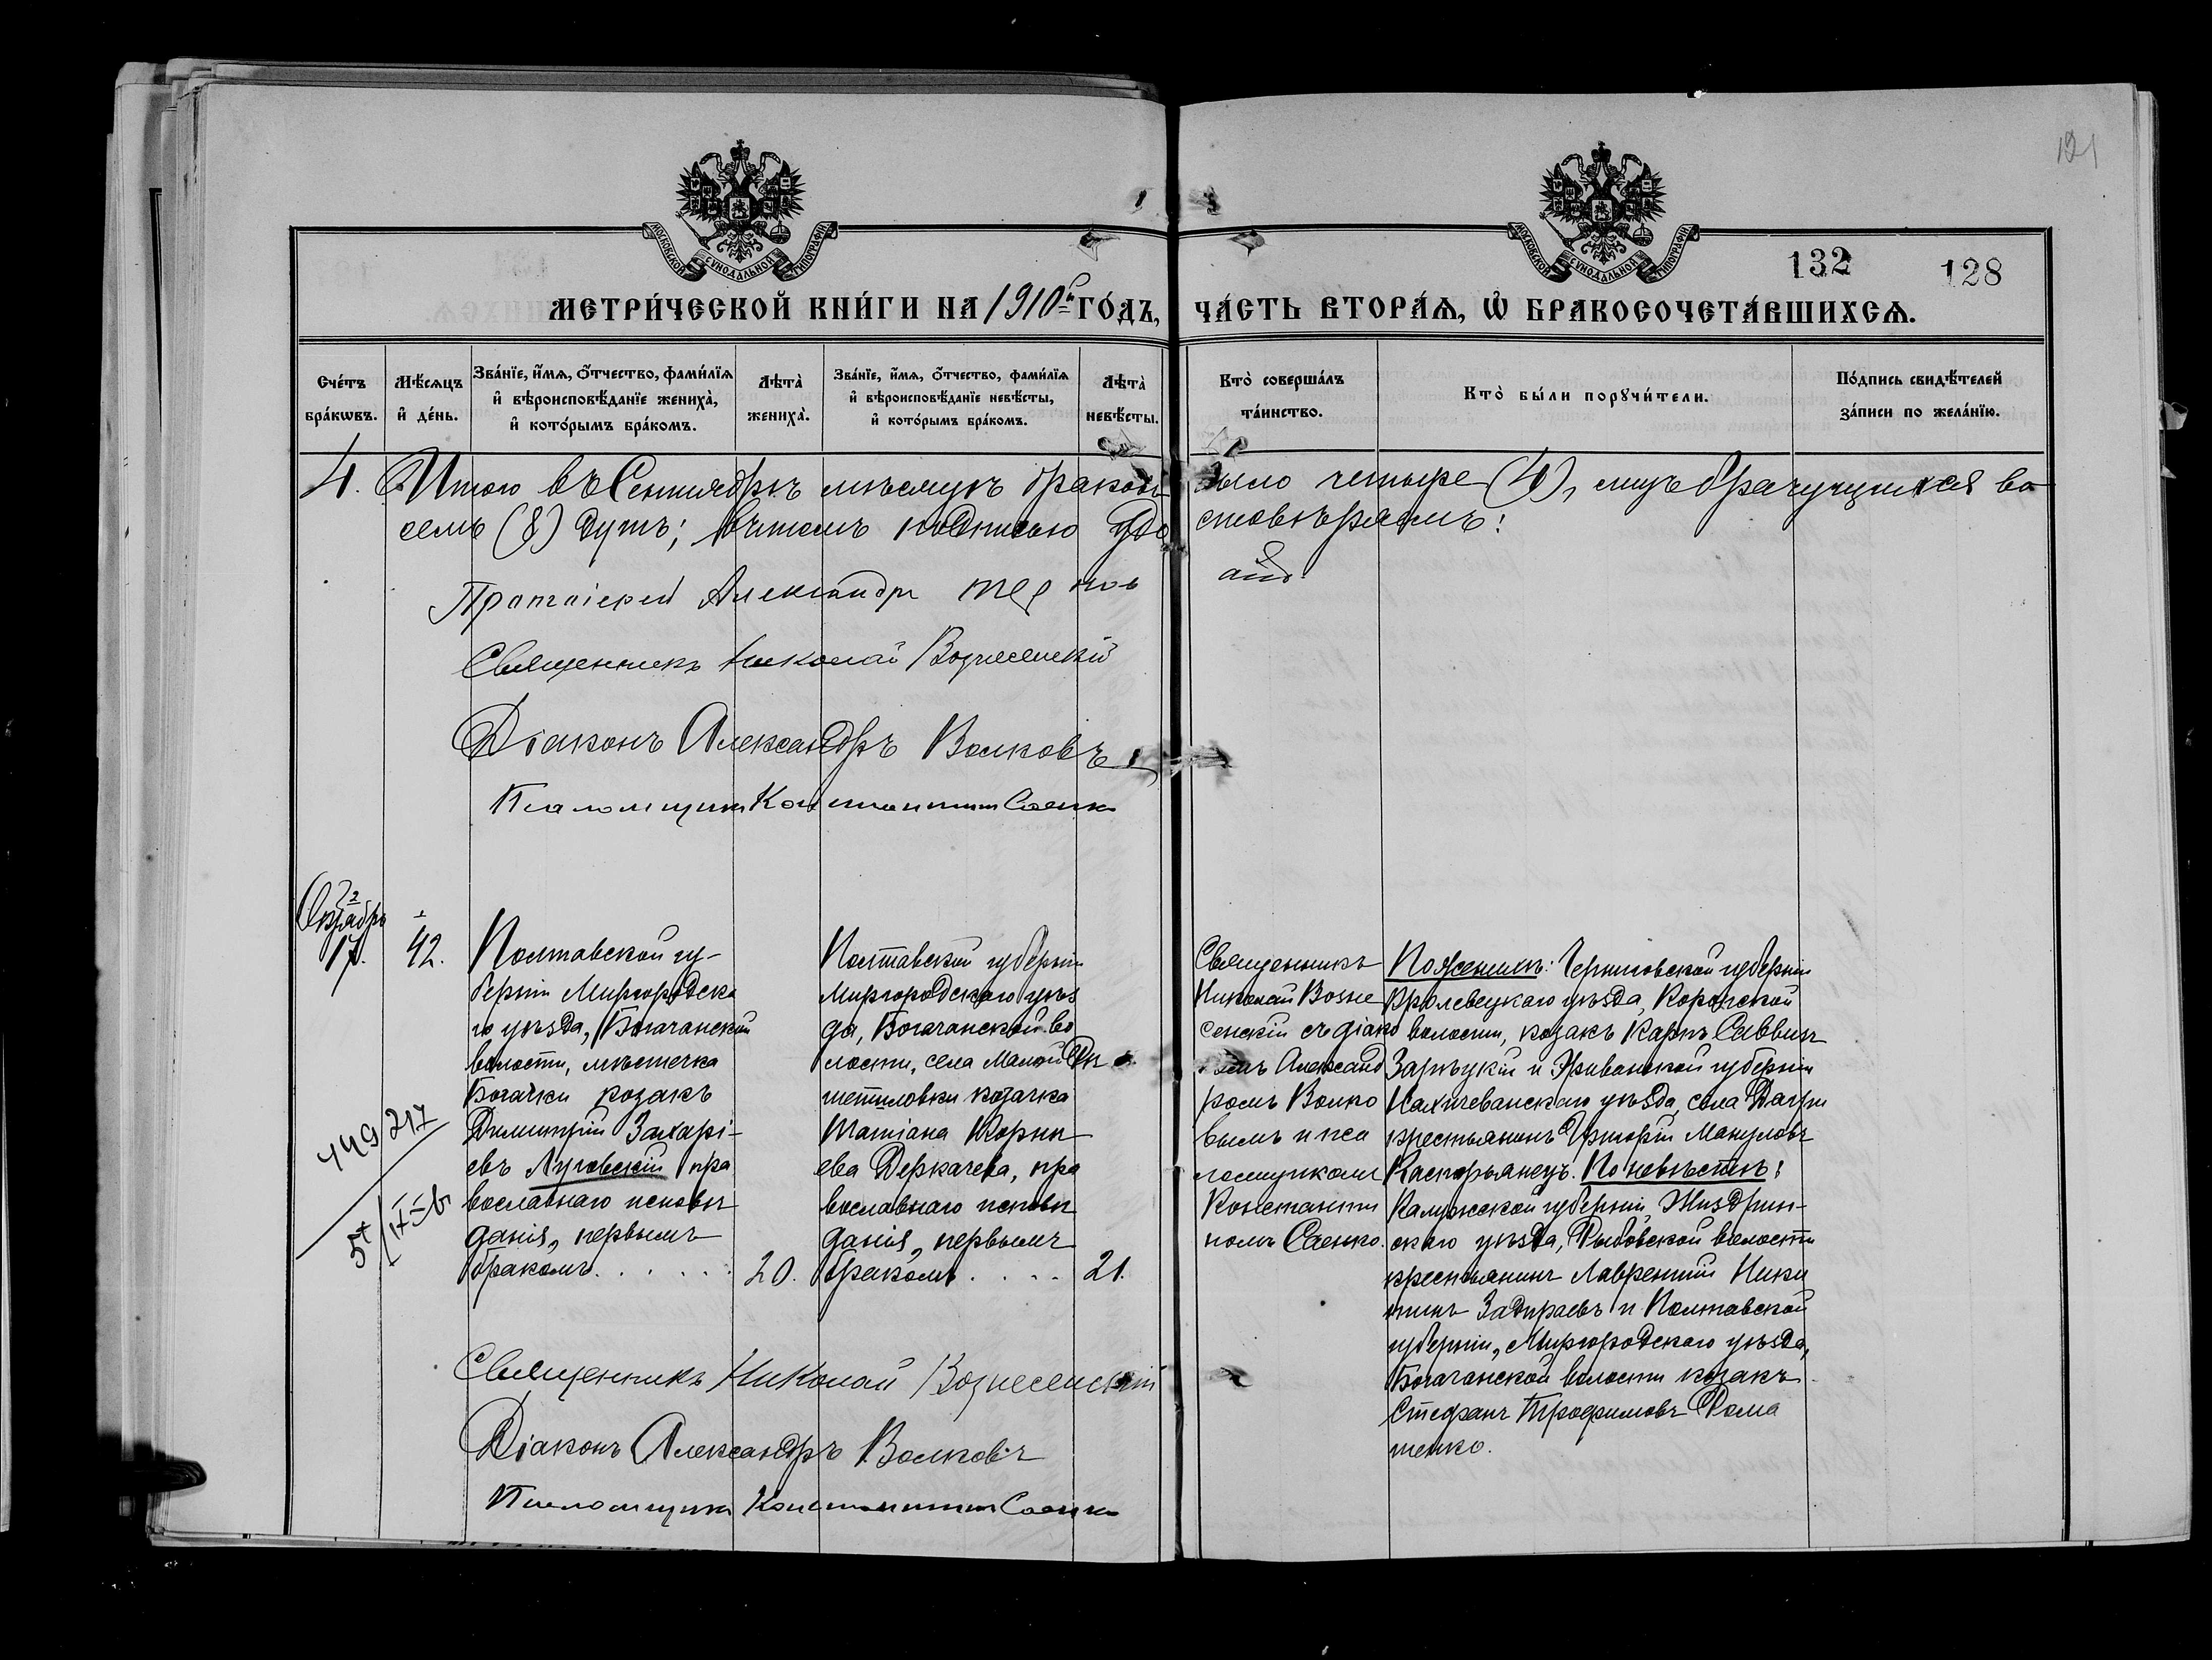 121
МОСКОВСКОЙ СѴНОДАЛЬНОЙ ТИПОГРАФІИ
МОСКОВСКОЙ СѴНОДАЛЬНОЙ ТИПОГРАФІИ
132 128
МЕТРИ́ЧЕСКОЙ КНИ́ГИ НА 1910й ГО́ДЪ, ЧА́СТЬ ВТОРА́Ѧ, Ѡ҆ БРАКОСОЧЕТА́ВШИХСѦ.
Сче́тъ бра́кѡвъ.
Мѣ́сѧцъ и҆ де́нь.
Зва́нїе, и҆́мѧ, ѻ҆́тчество, фами́лїѧ
и҆ вѣроисповѣ́данїе женихà,
и҆ кото́рымъ бра́комъ.
Лѣ́та̀ женихà.
Зва́нїе, и҆́мѧ, ѻ҆́тчество, фами́лїѧ
и҆ вѣроисповѣ́данїе невѣ́сты,
и҆ кото́рымъ бра́комъ.
Лѣ́та̀ невѣ́сты.
Кто̀ соверша́лъ
та́инство.
Кто̀ бы́ли порꙋчи́тели.
По́дпись свидѣ́телей
за́писи по жела́нїю.
4. Итого въ Сентябрѣ мѣсяцѣ браковъ было четыре (4), лицъ брачущихся во
семь (8) душъ; въ чемъ подписью удо стовѣряемъ:
Протоіерей Александръ
Священникъ Николай Вознесенскій
Діаконъ Александръ Волковъ
Псаломщикъ Константинъ Саенко
Октябрь
17. 42.
Полтавской гу-
берніи Миргородска
го уѣзда, Богачанской
волости, мѣстечка
Богачки козакъ
Димитрій Захарі-
евъ Луговскій пра
вославнаго исповѣ
данія, первымъ
бракомъ. . . . . . 20.
Полтавской губерніи
Миргородскаго уѣз
да, Богачанской во
лости, села Малой
козачка
Татіана Корни-
ева Деркачева, пра
вославнаго исповѣ
данія, первымъ
бракомъ . . . . 21.
Священникъ
Николай Возне
сенскій съ діако
номъ Александ
ромъ Волко
вымъ и пса
ломщикомъ
Константи
номъ Саенко.
По женихѣ: Черниговской губерніи
Кролевецкаго уѣзда, Коропской
волости, козакъ Карпъ Саввинъ
Зарѣцкій и Эриванской губерніи
Нахичеванскаго уѣзда, села
крестьянинъ Григорій Мануловъ
Каспарьянецъ. По невѣстѣ:
Калужской губерніи, Жиздрин-
скаго уѣзда, волости
крестьянинъ Лаврентій Ники
тинъ Задираевъ и Полтавской
губерніи, Миргородскаго уѣзда,
Богачанской волости козакъ
Стефанъ Трофимовъ Дома
шенко.
Священникъ Николай Вознесенскій
Діаконъ Александръ Волковъ
Псаломщикъ Константинъ Саенко